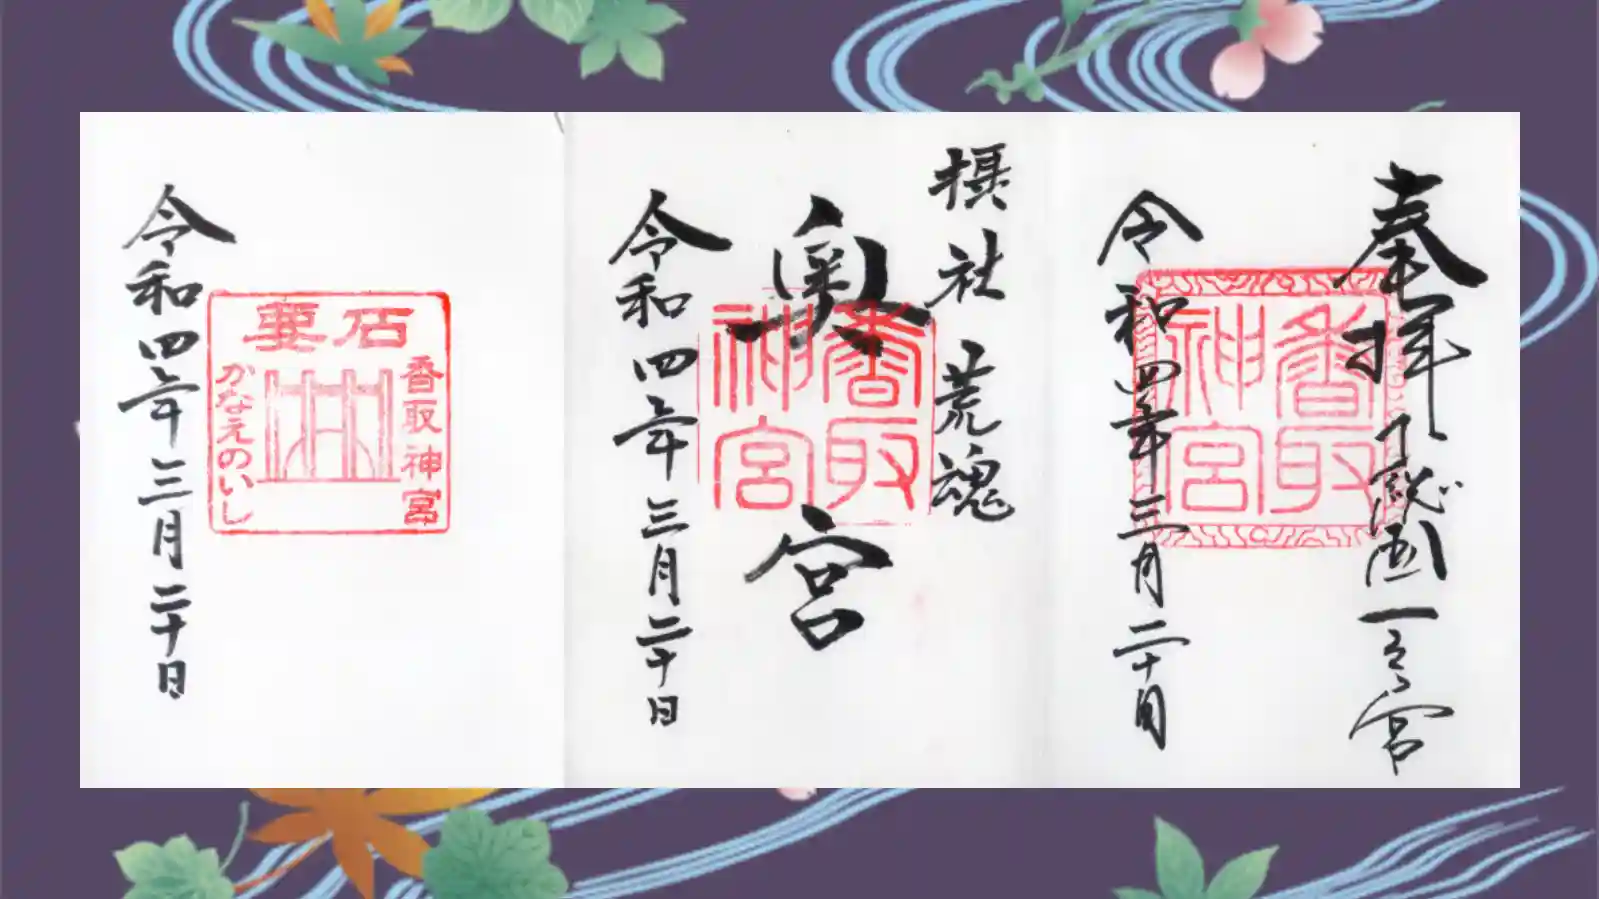 奉拝 下総国一之宮
香取神宮
令和四年三月二十日
摂社 荒魂
奥宮
香取神宮
令和四年三月二十日
石要
香取神宮
かなえのいし
令和四年三月二十日